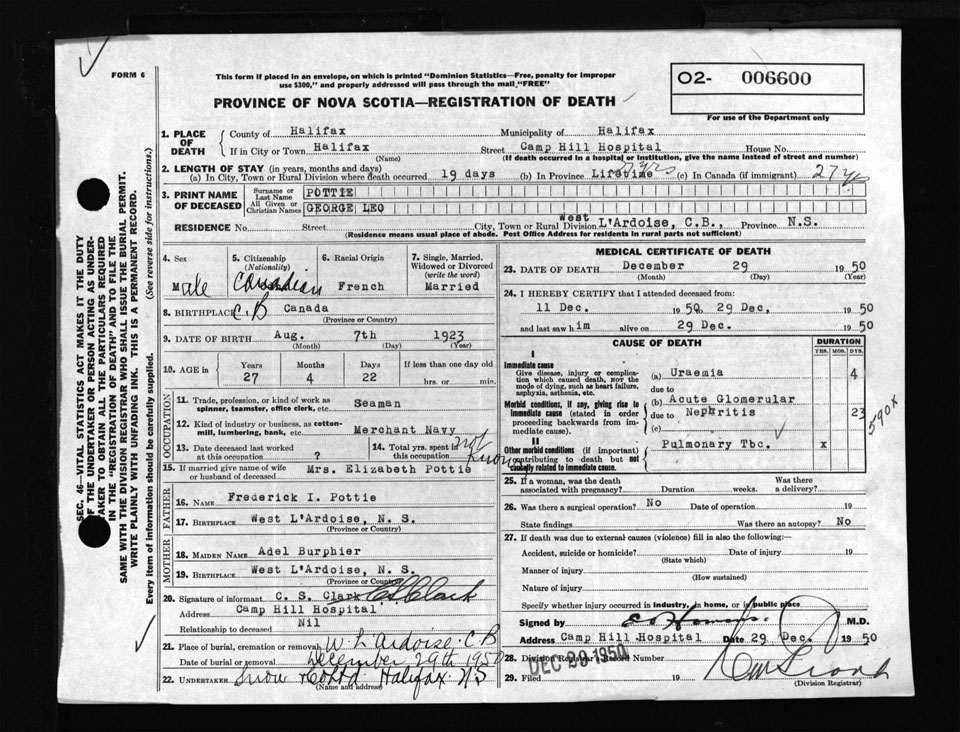 FORM 6
This form if placed in an envelope, on which is printed "Dominion Statistics—Free, penalty for improper
use $300," and properly addressed will pass through the mail "FREE"
O2- 006600
For use of the Department only
PROVINCE OF NOVA SCOTIA—REGISTRATION OF DEATH
1. PLACE OF DEATH
County of Halifax Municipality of Halifax
If in City or Town Halifax Street Camp Hill Hospital House No.
(Name) (If death occurred in a hospital or institution, give the name instead of street and number)
2. LENGTH OF STAY (in years, months and days)
(a) In City, Town or Rural Division where death occurred 19 days (b) In Province Lifetime (c) In Canada (if immigrant) 27 yrs
3. PRINT NAME OF DECEASED
Surname or Last Name POTTIE
All Given or Christian Names GEORGE LEO
RESIDENCE No. Street City, Town or Rural Division West L'Ardoise, C.B., Province N.S.
(Residence means usual place of abode. Post Office Address for residents in rural parts not sufficient)
4. Sex
Male
5. Citizenship (Nationality)
Canadian
6. Racial Origin
French
7. Single, Married, Widowed or Divorced (write the word)
Married
8. BIRTHPLACE C.B Canada
(Province or Country)
9. DATE OF BIRTH Aug. 7th 1923
(Month) (Day) (Year)
10. AGE in Years Months Days If less than one day old
27 4 22 hrs. or min.
OCCUPATION
11. Trade, profession, or kind of work as
spinner, teamster, office clerk, etc. Seaman
12. Kind of industry or business, as cotton-
mill, lumbering, bank, etc. Merchant Navy
13. Date deceased last worked
at this occupation ?
14. Total yrs. spent in
this occupation not Known
15. If married give name of wife
or husband of deceased Mrs. Elizabeth Pottie
FATHER
16. NAME Frederick I. Pottie
17. BIRTHPLACE West L'Ardoise, N. S.
(Province or Country)
MOTHER
18. MAIDEN NAME Adel Burphier
19. BIRTHPLACE West L'Ardoise, N. S.
(Province or Country)
20. Signature of informant C. S. Clark CS Clark
Address Camp Hill Hospital
Relationship to deceased Nil
21. Place of burial, cremation or removal W. L'Ardoise. C B
Date of burial or removal December 29th 1950
22. UNDERTAKER Snow Halifax N S
(Name and address)
MEDICAL CERTIFICATE OF DEATH
23. DATE OF DEATH December 29 1950
(Month) (Day) (Year)
24. I HEREBY CERTIFY that I attended deceased from:
11 Dec. 1950 29 Dec, 1950
and last saw him alive on 29 Dec. 1950
CAUSE OF DEATH DURATION
YRS. MOS. DYS.
I
Immediate cause
Give disease, injury or complica-
tion which caused death, NOT the
mode of dying, such as heart failure,
asphyxia, asthenia, etc.
(a) Uraemia 4
due to
Morbid conditions, if any, giving rise to
immediate cause (stated in order
proceeding backwards from im-
mediate cause).
(b) Acute Glomerular
due to Nephritis 23
(c)
590X
II
Other morbid conditions (if important)
contributing to death but not
causally related to immediate cause.
Pulmonary Tbc. x
25. If a woman, was the death
associated with pregnancy? Duration weeks. Was there
a delivery?
26. Was there a surgical operation? No Date of operation 19
State findings Was there an autopsy? No
27. If death was due to external causes (violence) fill in also the following:—
Accident, suicide or homicide? Date of injury 19
(State which)
Manner of injury
(How sustained)
Nature of injury
Specify whether injury occurred in industry, in home, or in public place
Signed by M.D.
Address Camp Hill Hospital Date 29 Dec. 1950
28. Division Registrar's Record Number
DEC 29 1950
29. Filed 19
(Division Registrar)
SEC. 46—VITAL STATISTICS ACT MAKES IT THE DUTY
OF THE UNDERTAKER OR PERSON ACTING AS UNDER-
TAKER TO OBTAIN ALL THE PARTICULARS REQUIRED
IN THE "REGISTRATION OF DEATH" AND TO FILE THE
SAME WITH THE DIVISION REGISTRAR WHO SHALL ISSUE THE BURIAL PERMIT.
WRITE PLAINLY WITH UNFADING INK. THIS IS A PERMANENT RECORD.
Every item of information should be carefully supplied. (See reverse side for instructions.)